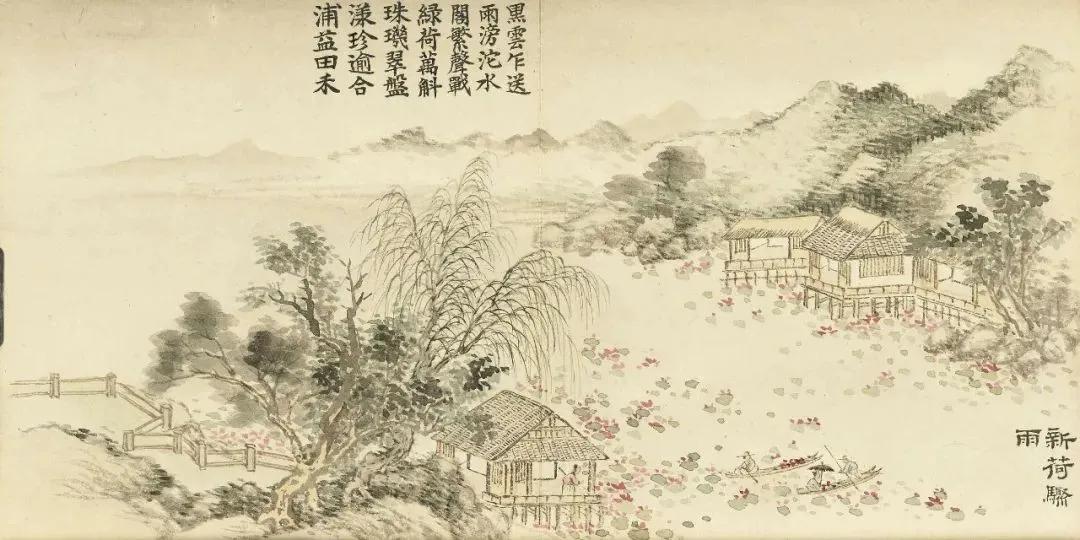 黑雲乍送
雨滂沱水
閣繁聲戰
綠荷萬斛
珠璣翠盤
漾珍逾合
浦益田禾
新荷驟
雨